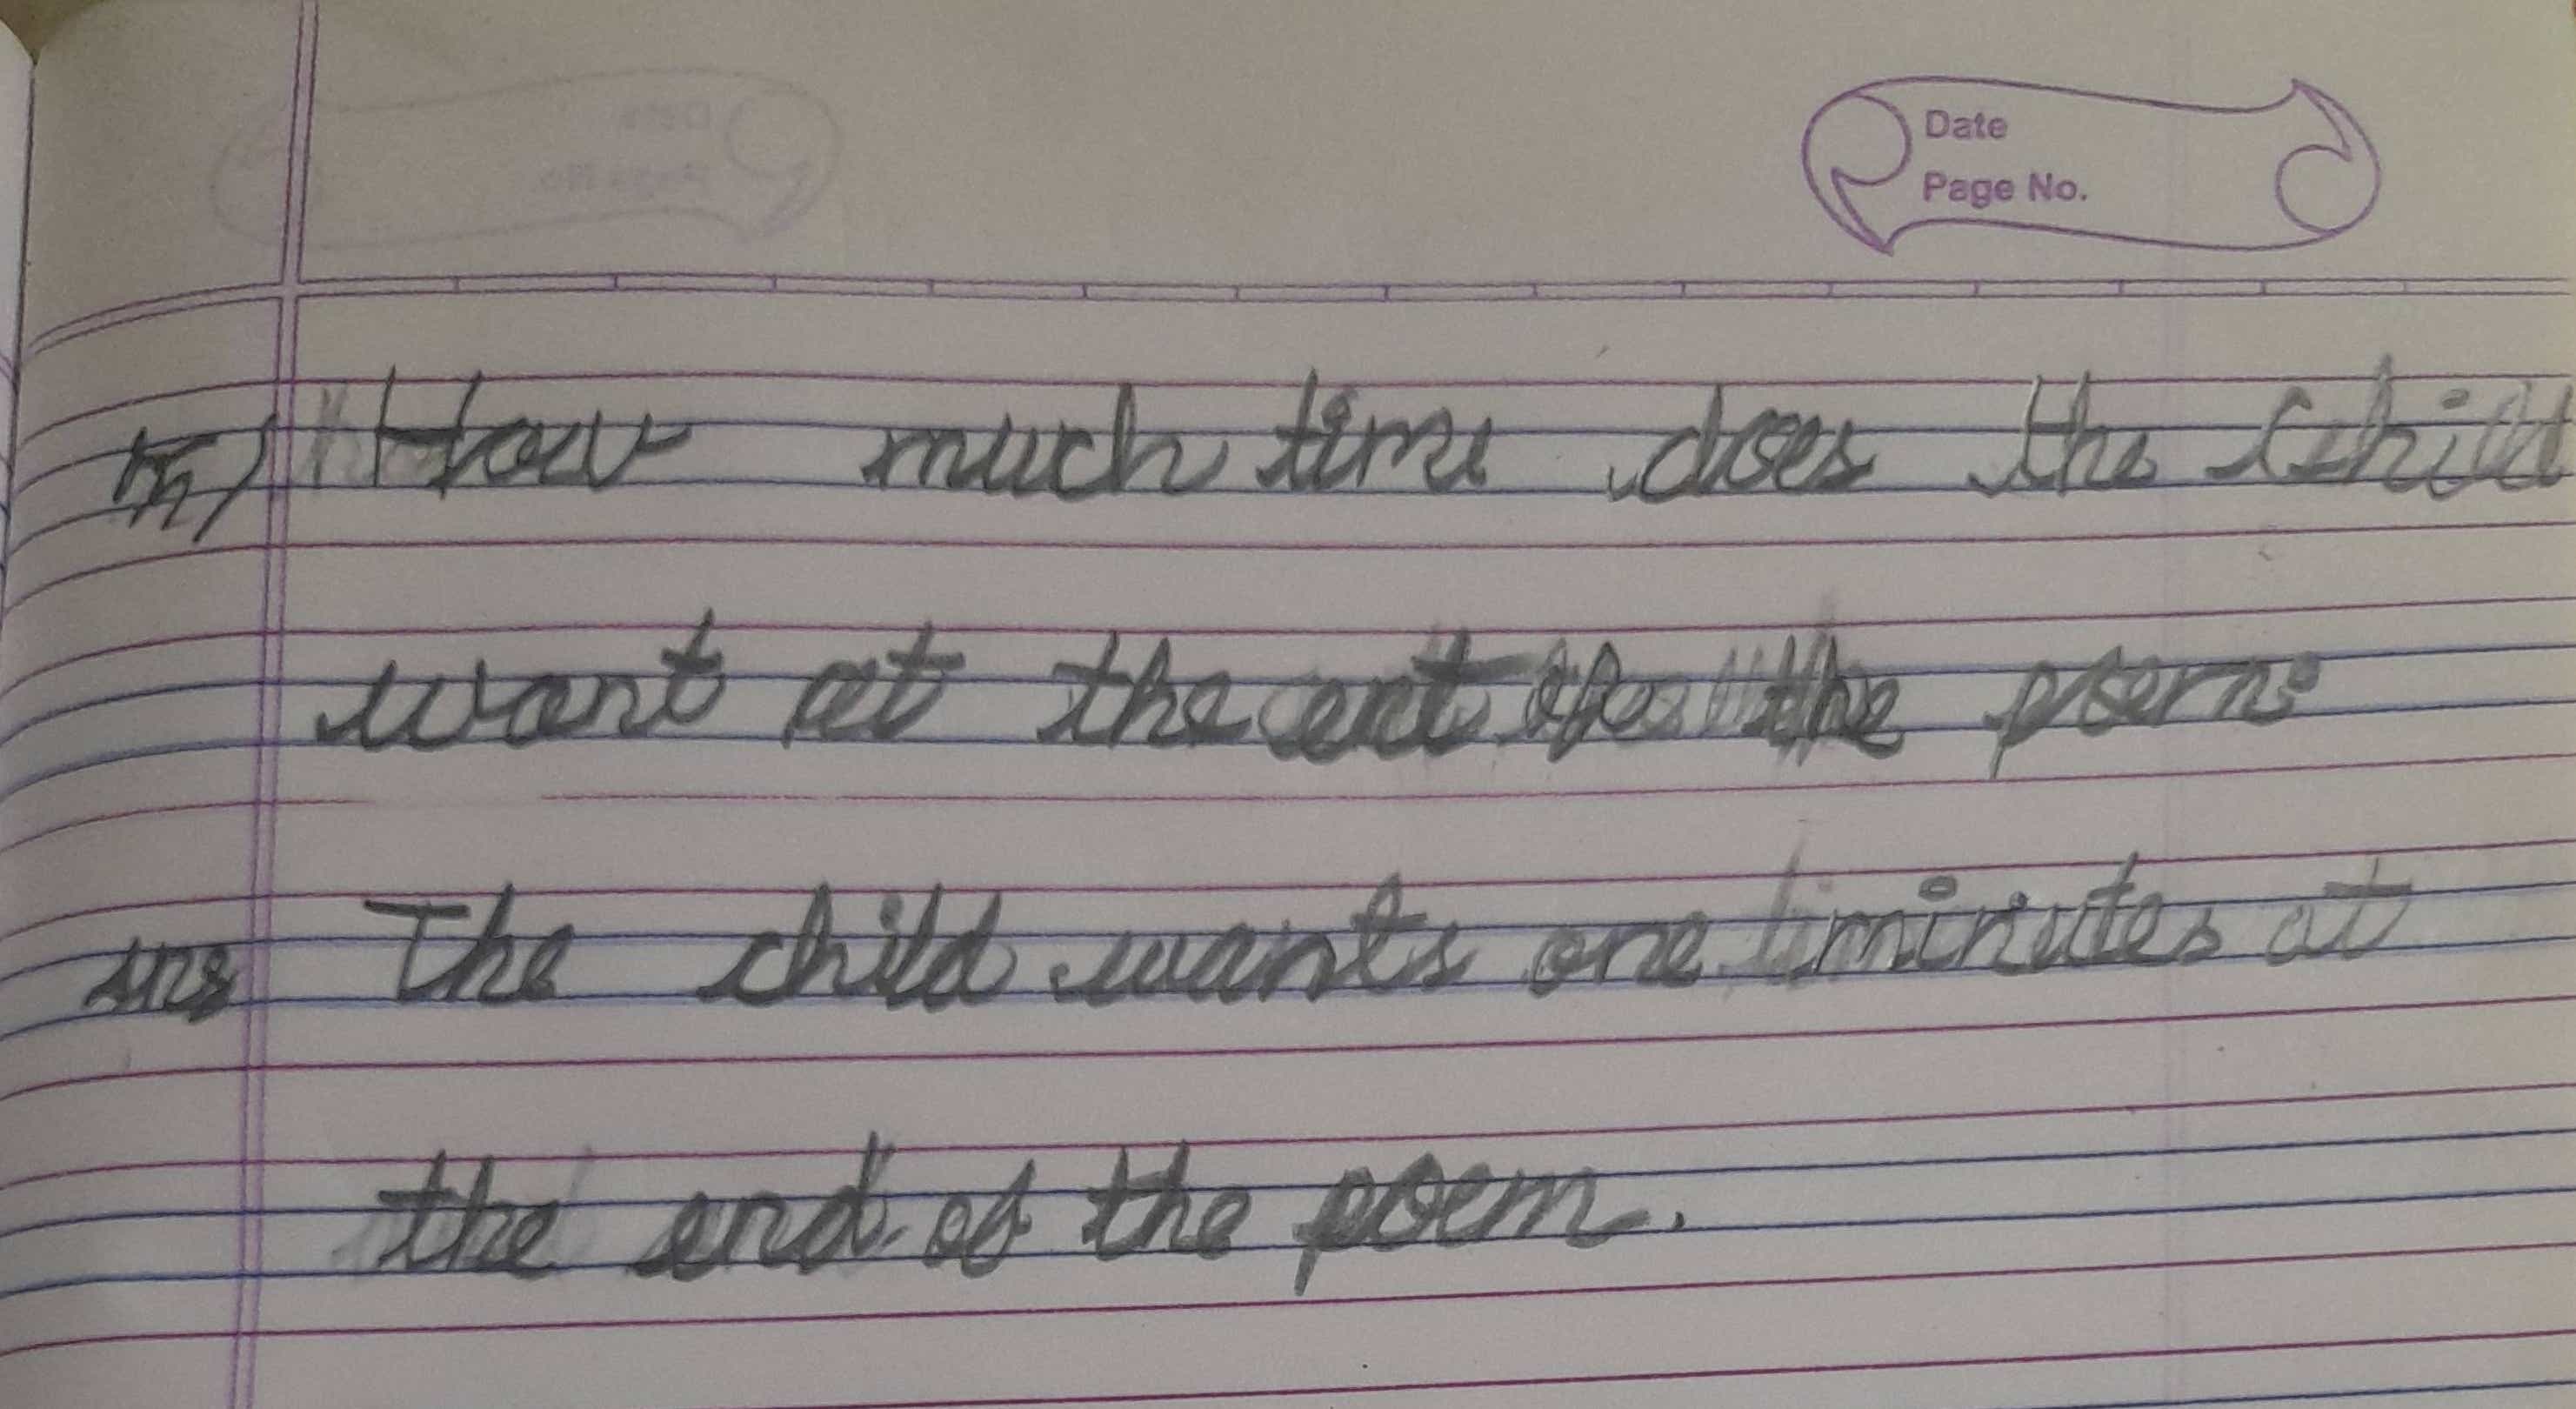 Date
Page No.
How much time does the child
want at the ent the poem
ans The child wants one minutes at
the end of the poem.